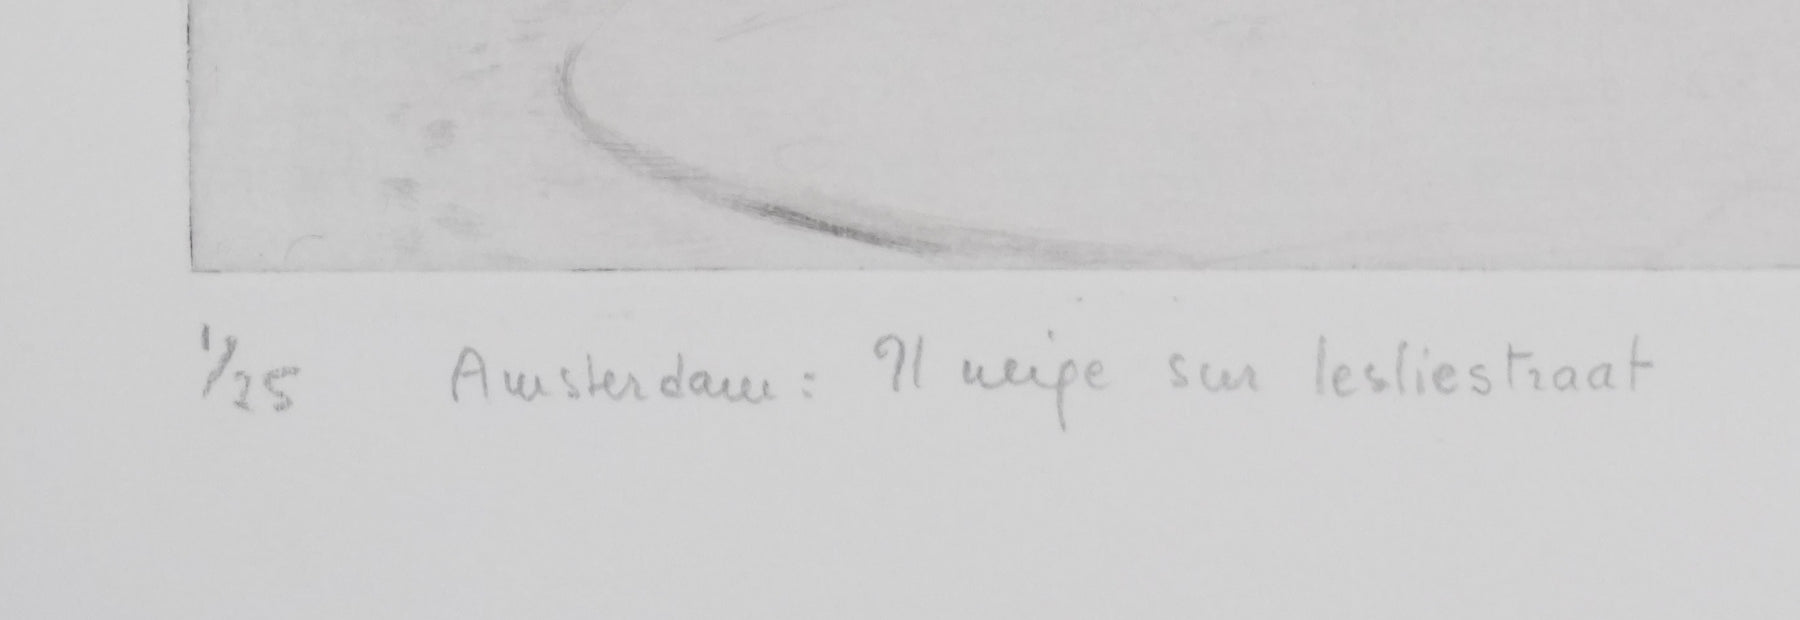 1/25 Amsterdam: Il neige sur lesliestraat